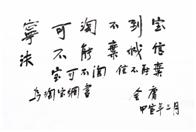 寧可淘不到宝
决不能棄誠信
宝可不淘 信不能棄
為淘宝網書 金庸
甲申年二月